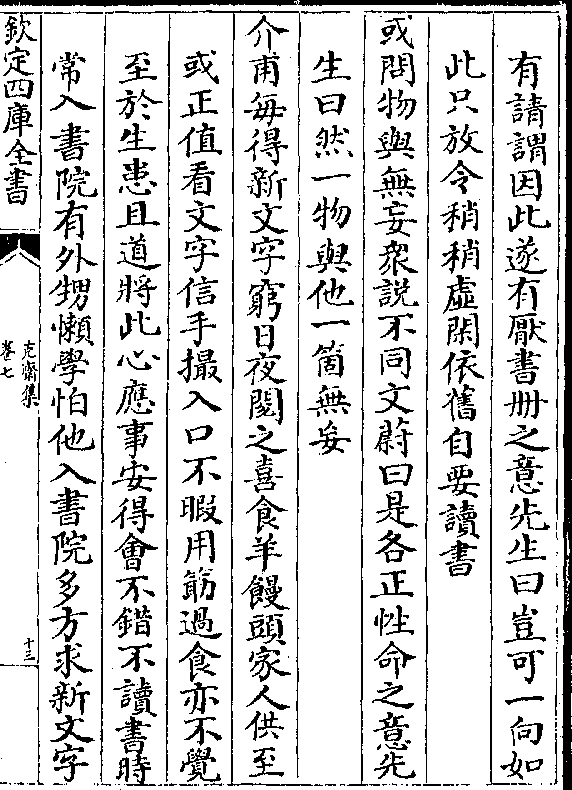 有請謂因此遂有厭書册之意先生曰豈可一向如
此只放令稍稍虛閑依舊自要讀書
或問物與無妄衆說不同文蔚曰是各正性命之意先
生曰然一物與他一箇無妄
介甫每得新文字窮日夜閱之喜食羊饅頭家人供至
或正值看文字信手撮入口不暇用筯過食亦不覺
至於生患且道將此心應事安得會不錯不讀書時
常入書院有外甥懶學怕他入書院多方求新文字
欽定四庫全書
克齋集
卷七
十三